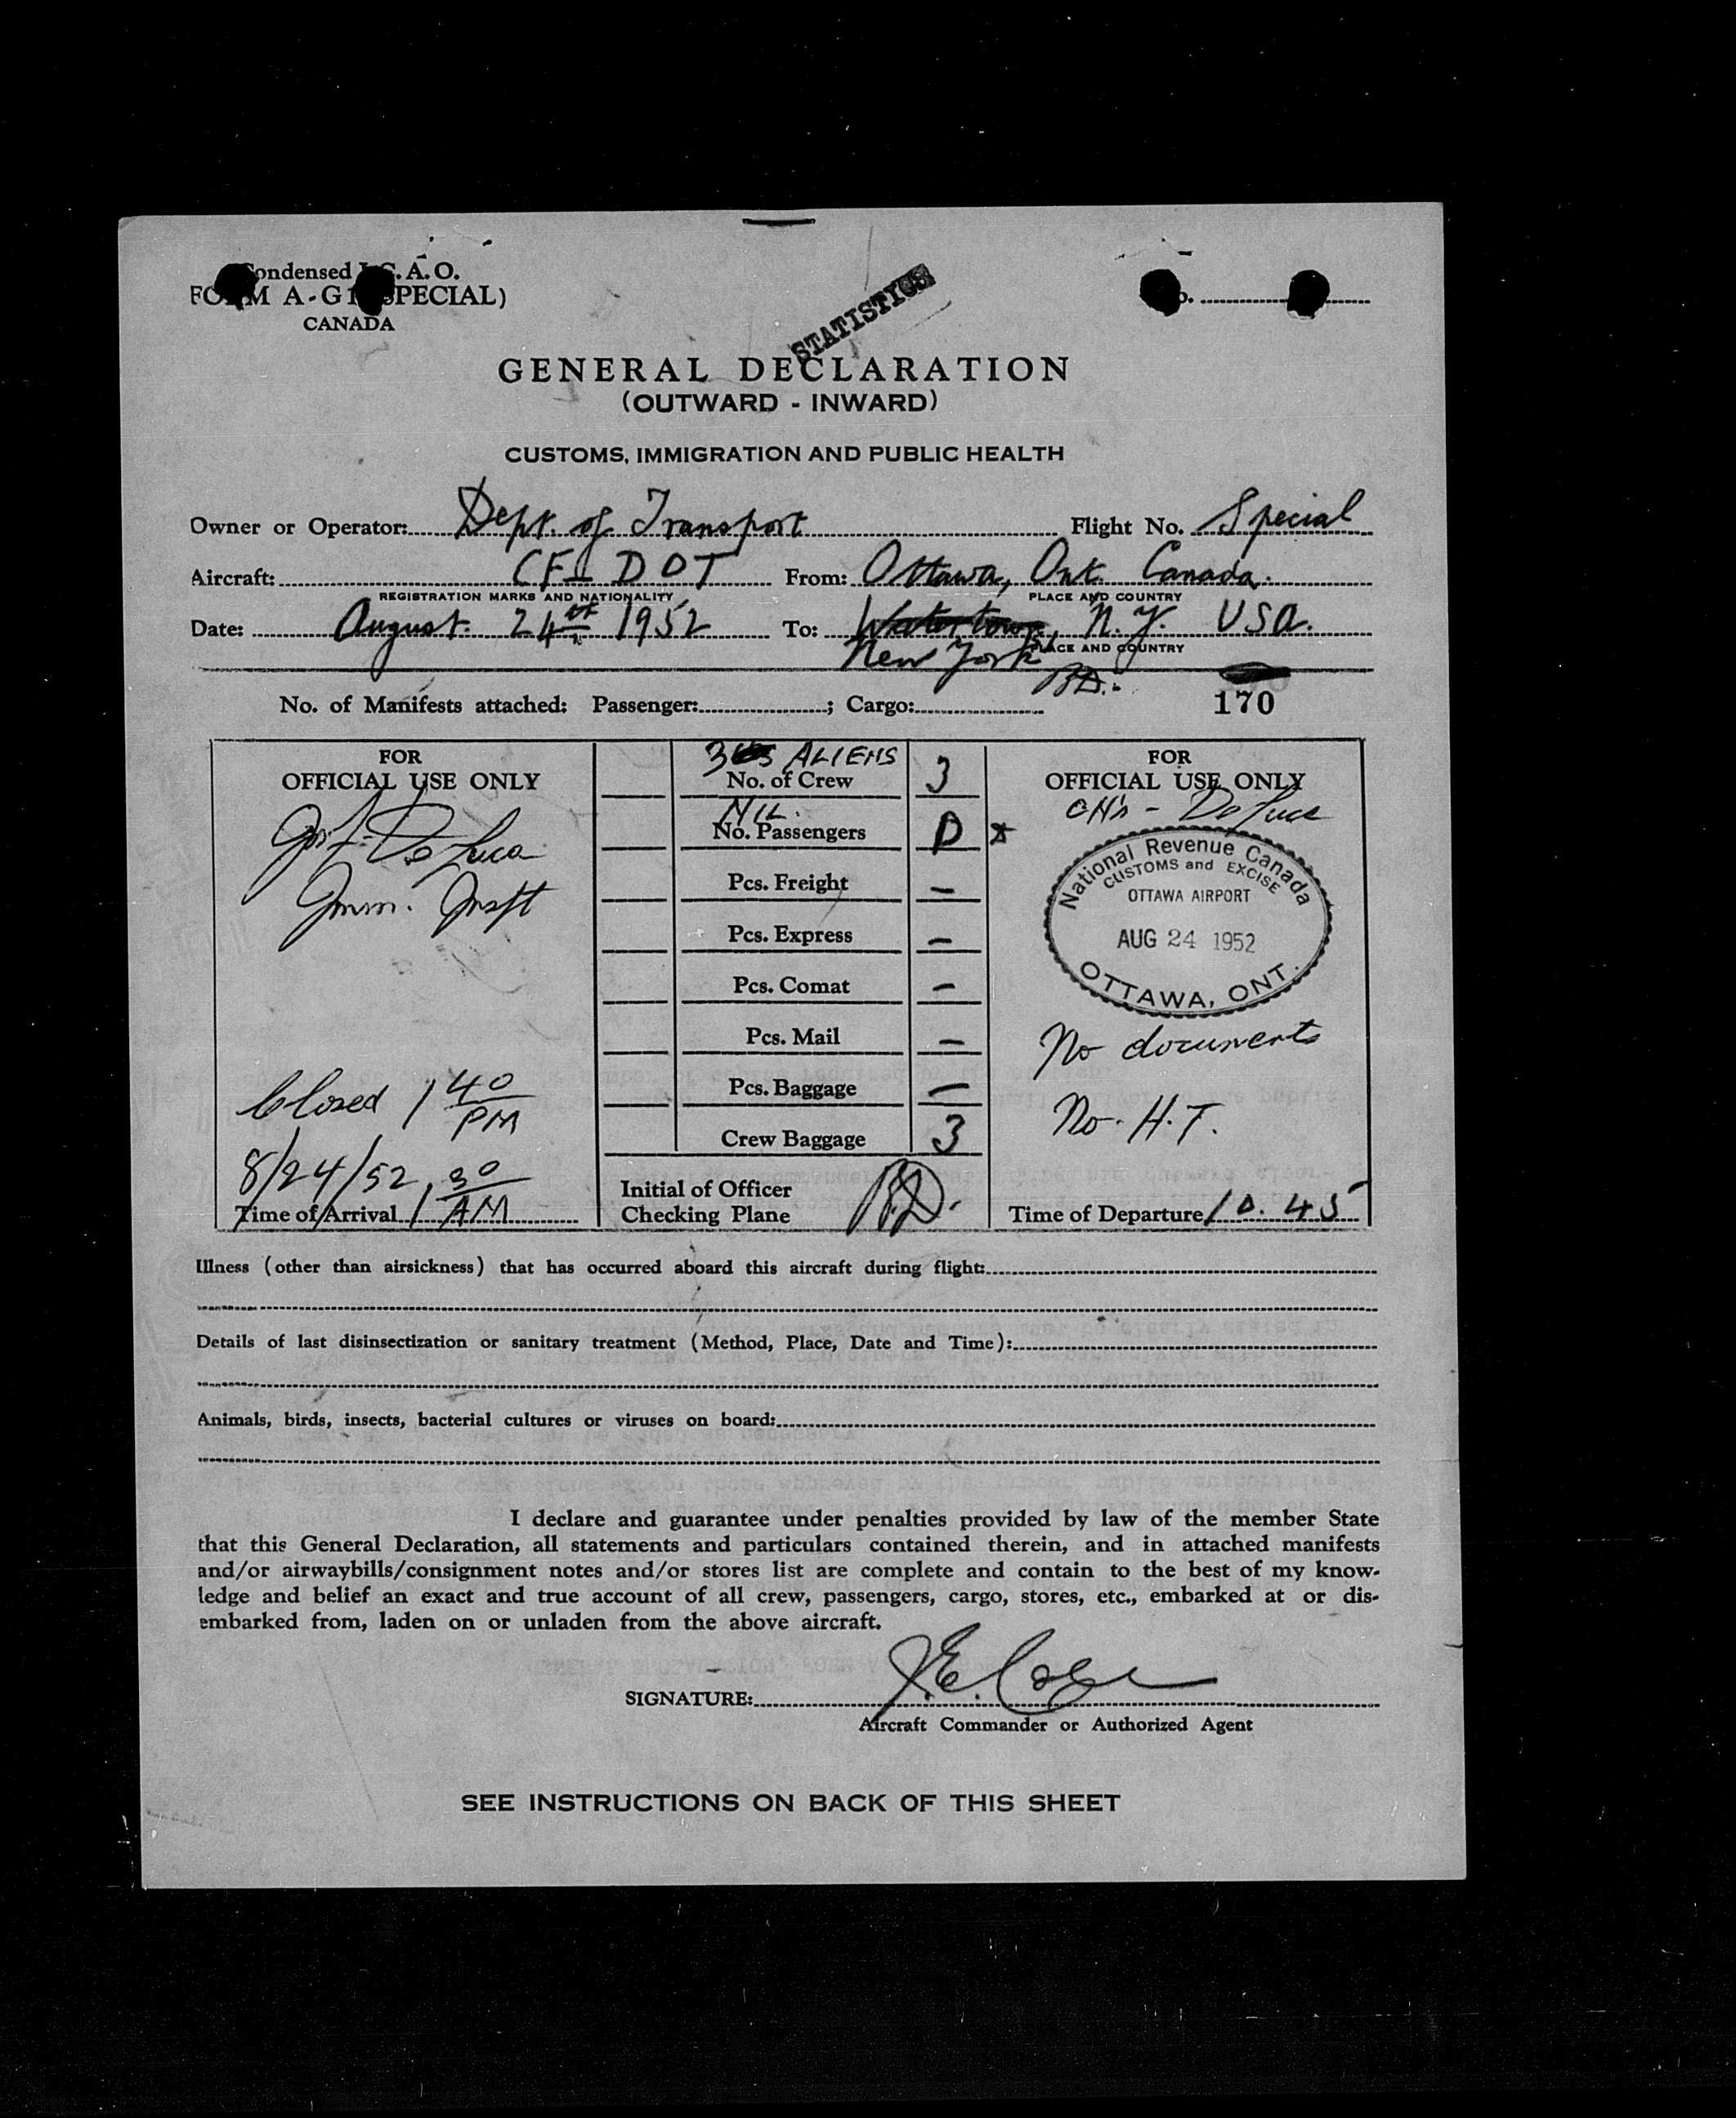 Condensed I.C.A.O.
FORM A-G1 (SPECIAL)
CANADA
No.
STATISTICS
GENERAL DECLARATION
(OUTWARD - INWARD)
CUSTOMS, IMMIGRATION AND PUBLIC HEALTH
Owner or Operator: Dept. of Transport Flight No. Special
Aircraft: CF-DOT From: Ottawa, Ont. Canada.
REGISTRATION MARKS AND NATIONALITY PLACE AND COUNTRY
Date: August 24th 1952 To: Watertown, N.Y. USA.
New York PLACE AND COUNTRY
No. of Manifests attached: Passenger: ; Cargo: 170
FOR
OFFICIAL USE ONLY
De Luca
Closed 1 40 PM
8/24/52
Time of Arrival 1 30 AM
3 ALIENS
No. of Crew 3
NIL.
No. Passengers 0
Pcs. Freight -
Pcs. Express -
Pcs. Comat -
Pcs. Mail -
Pcs. Baggage -
Crew Baggage 3
Initial of Officer
Checking Plane
FOR
OFFICIAL USE ONLY
De Luca
National Revenue Canada
CUSTOMS and EXCISE
OTTAWA AIRPORT
AUG 24 1952
OTTAWA, ONT.
No documents
No. H.T.
Time of Departure 10.45
Illness (other than airsickness) that has occurred aboard this aircraft during flight:
Details of last disinsectization or sanitary treatment (Method, Place, Date and Time):
Animals, birds, insects, bacterial cultures or viruses on board:
I declare and guarantee under penalties provided by law of the member State
that this General Declaration, all statements and particulars contained therein, and in attached manifests
and/or airwaybills/consignment notes and/or stores list are complete and contain to the best of my know-
ledge and belief an exact and true account of all crew, passengers, cargo, stores, etc., embarked at or dis-
embarked from, laden on or unladen from the above aircraft.
SIGNATURE: J.E.
Aircraft Commander or Authorized Agent
SEE INSTRUCTIONS ON BACK OF THIS SHEET